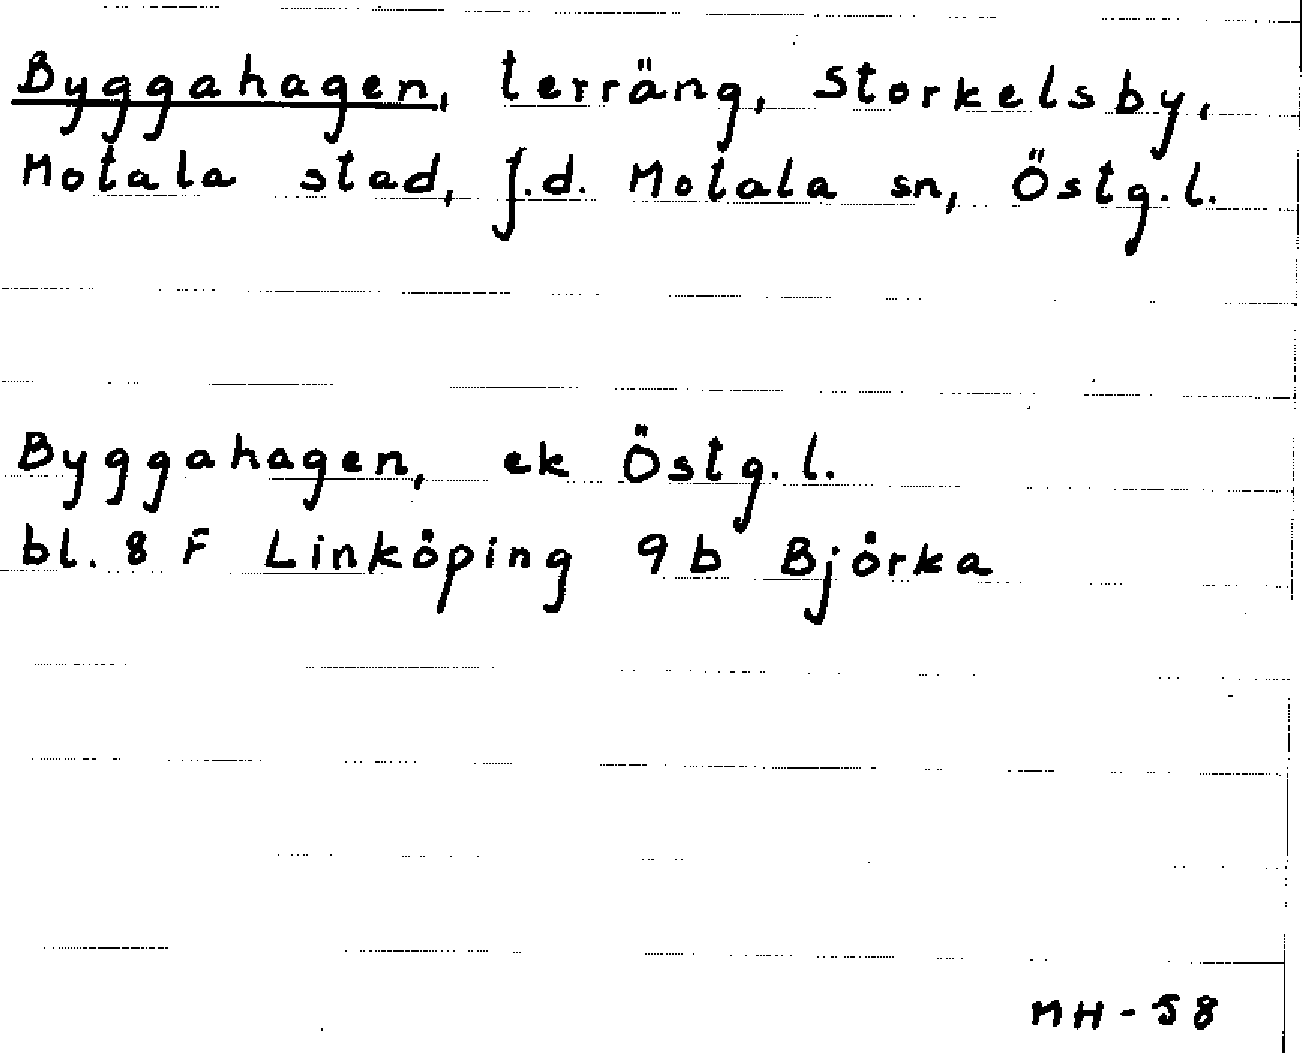 Byggahagen, terräng, Storkelsby,
Motala stad, f.d. Motala sn, Östg.l.
Byggahagen, ek Östg.l.
bl. 8 F Linköping 9 b Björka
MH-58